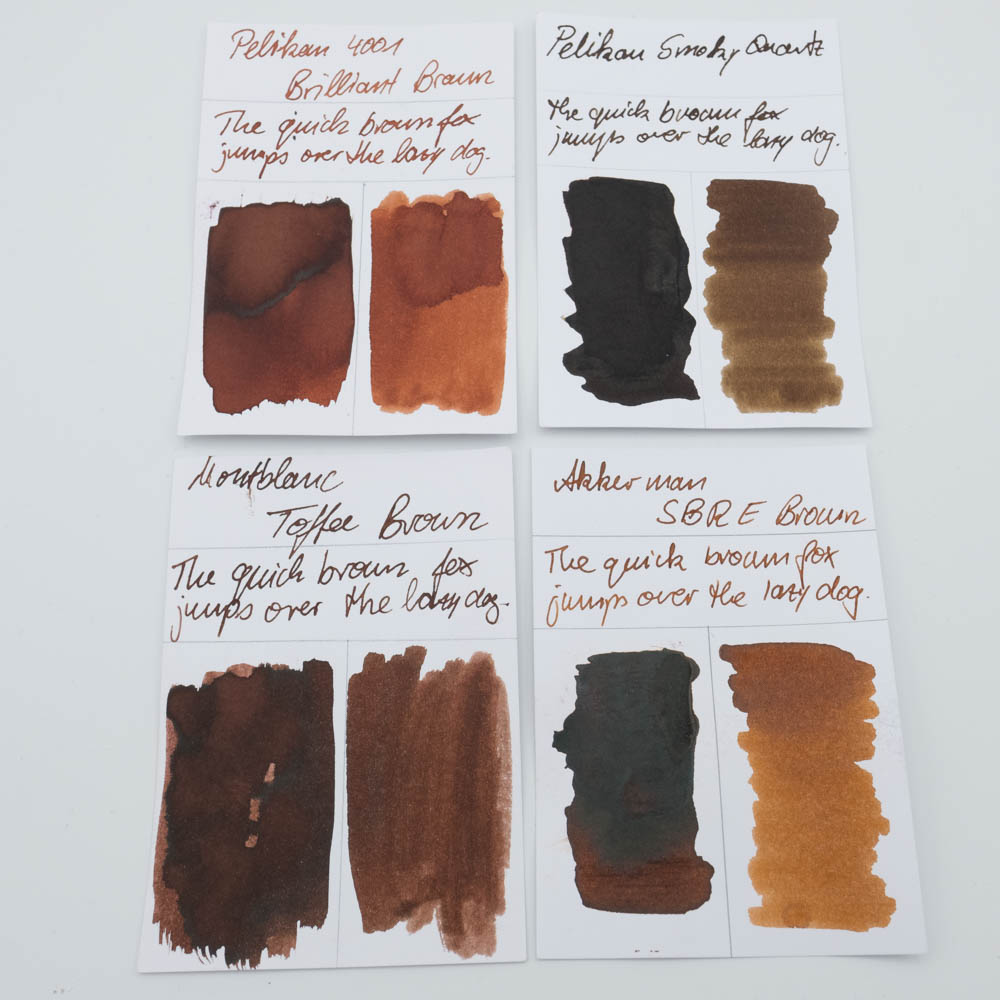 Pelikan 4001
Brilliant Brown
The quick brown fox
jumps over the lazy dog.
Pelikan Smoky Quartz
the quick brown fox
jumps over the lazy dog.
Montblanc
Toffee Brown
The quick brown fox
jumps over the lazy dog.
Akkerman
SBRE Brown
The quick brown fox
jumps over the lazy dog.